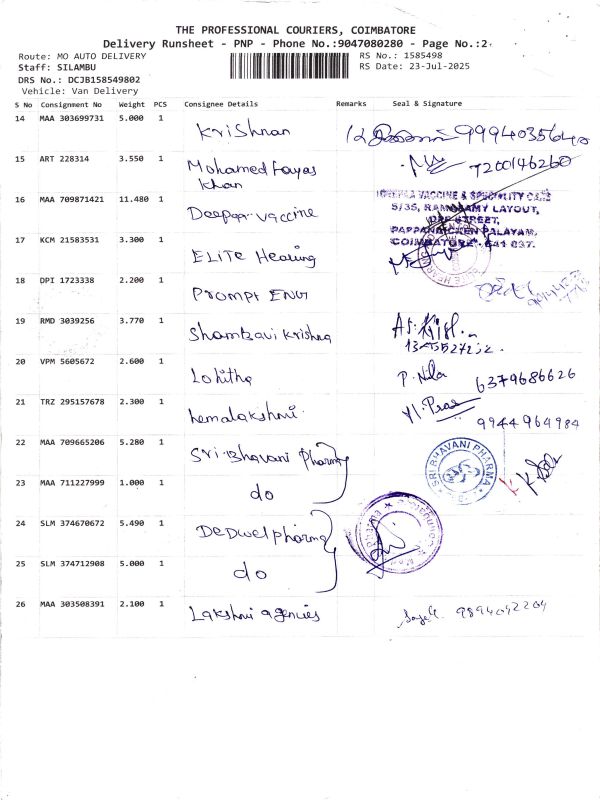 THE PROFESSIONAL COURIERS, COIMBATORE
Delivery Runsheet - PNP - Phone No.:9047080280 - Page No.:2
Route: MO AUTO DELIVERY
RS No.: 1585498
Staff: SILAMBU
RS Date: 23-Jul-2025
DRS No.: DCJB158549802
Vehicle: Van Delivery
S No Consignment No Weight PCS Consignee Details Remarks Seal & Signature
14 MAA 303699731 5.000 1 Krishnan 9994035640
15 ART 228314 3.550 1 Mohamed fayas 7200146260
khan
16 MAA 709871421 11.480 1 Deepa vaccine
VACCINE & SPECIALITY CARE
5/35, RANGASAMY LAYOUT,
STREET,
PAPPANAICKEN PALAYAM,
COIMBATORE - 641 037.
17 KCM 21583531 3.300 1 ELITE Hearing
18 DPI 1723338 2.200 1 Prompt ENGI
19 RMD 3039256 3.770 1 Shambavi Krishna
20 VPM 5605672 2.600 1 Lohitha P. Nila 6379686626
21 TRZ 295157678 2.300 1 hemalakshmi 9944964984
22 MAA 709665206 5.280 1 Sri Bhavani Pharmacy
SRI BHAVANI PHARMA
23 MAA 711227999 1.000 1 do
24 SLM 374670672 5.490 1 Dedwel pharma
25 SLM 374712908 5.000 1 do
26 MAA 303508391 2.100 1 Lakshmi agencies 9894092204